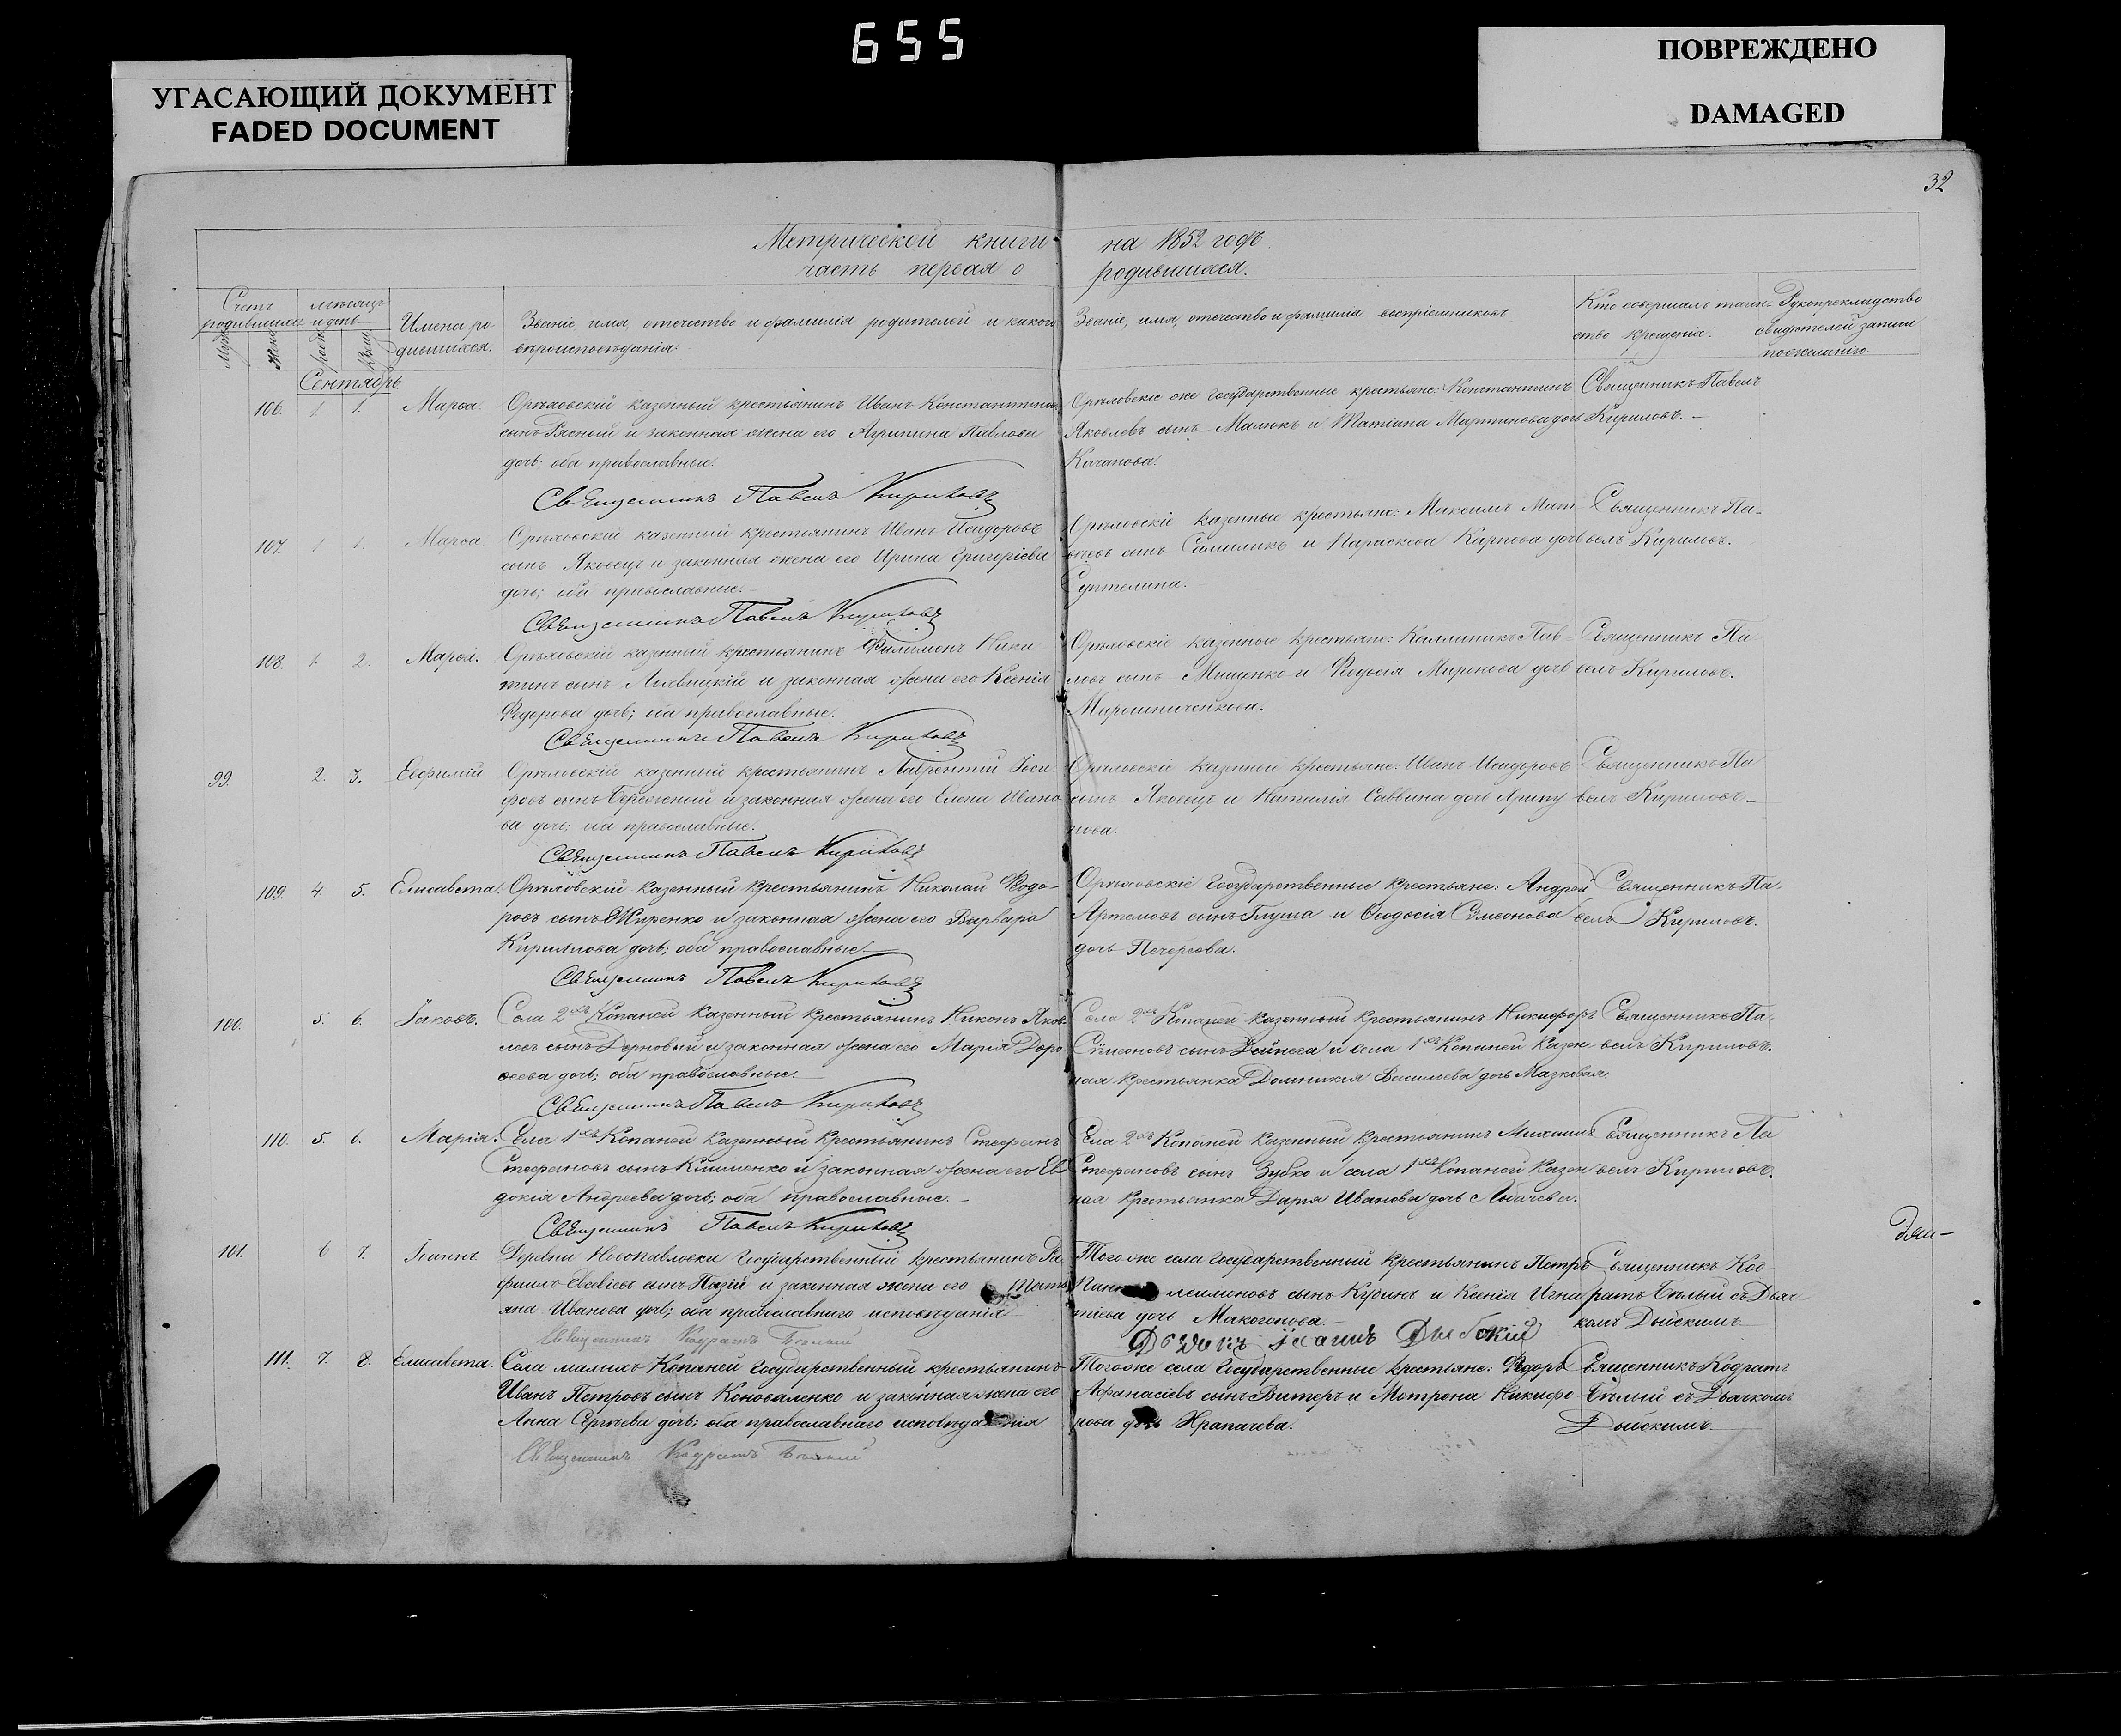 655
УГАСАЮЩИЙ ДОКУМЕНТ
FADED DOCUMENT
ПОВРЕЖДЕНО
DAMAGED
32
Метрической книги на 1852 годъ.
часть первая о родившихся.
Счетъ родившихся
мѣсяцъ и день
Имена родившихся.
Званіе, имя, отечество и фамилія родителей и какого вѣроисповѣданія.
Званіе, имя, отечество и фамилія воспріемниковъ
Кто совершалъ таинство крещенія.
Рукоприкладство свидѣтелей записи по желанію.
Сентябрь.
106. 1. 1. Марѳа.
Орѣховскій казенный крестьянинъ Иванъ Константиновъ
сынъ Рясный и законная жена его Агрипина Павлова
дочь; оба православные.
Священникъ Павелъ Кириловъ
Орѣховскіе же государственные крестьяне: Константинъ
Яковлевъ сынъ Малюкъ и Татіана Мартинова дочь
Качанова.
Священникъ Павелъ
Кириловъ.
107. 1. 1. Марѳа.
Орѣховскій казенный крестьянинъ Иванъ Исидоровъ
сынъ Яковецъ и законная жена его Ирина Григоріева
дочь; оба православные.
Священникъ Павелъ Кириловъ
Орѣховскіе казенные крестьяне: Максимъ Мат-
вѣевъ сынъ и Параскева Карпова дочь
Священникъ Па-
велъ Кириловъ.
108. 1. 2. Марѳа.
Орѣховскій казенный крестьянинъ Филимонъ Ники-
тинъ сынъ и законная жена его Ксенія
Ѳедорова дочь; оба православные.
Священникъ Павелъ Кириловъ
Орѣховскіе казенные крестьяне: Каллиникъ Пав-
ловъ сынъ Мищенко и Ѳеодосія Миронова дочь
Мирошниченкова.
Священникъ Па
велъ Кириловъ.
99. 2. 3. Евфимій
Орѣховскій казенный крестьянинъ Лаврентій Іоси-
фовъ сынъ Бережный и законная жена его Елена Ивано-
ва дочь; оба православные.
Священникъ Павелъ Кириловъ
Орѣховскіе казенные крестьяне: Иванъ Исидоровъ
сынъ Яковецъ и Наталія Саввина дочь
нова.
Священникъ Па
велъ Кириловъ
109. 4. 5. Елисавета.
Орѣховскій казенный крестьянинъ Николай Ѳедо-
ровъ сынъ Жиренко и законная жена его Варвара
Кириллова дочь; оба православные.
Священникъ Павелъ Кириловъ
Орѣховскіе государственные крестьяне: Андрей
Артемовъ сынъ Глуша и Ѳеодосія Симеонова
дочь Печерсова.
Священникъ Па-
велъ Кириловъ.
100. 5. 6. Іаковъ.
Села 2хъ Копаней казенный крестьянинъ Никонъ Яков-
левъ сынъ Дерновый и законная жена его Марія Доро-
ѳеева дочь; оба православные.
Священникъ Павелъ Кириловъ
Села 2хъ Копаней казенный крестьянинъ Никифоръ
Симеоновъ сынъ Дейнега и села 1хъ Копаней казен-
ная крестьянка Домникія Васильева дочь Мазковая.
Священникъ Па-
велъ Кириловъ.
110. 5. 6. Марія.
Села 1хъ Копаней казенный крестьянинъ Стефанъ
Стефановъ сынъ Клименко и законная жена его Ев-
докія Андреева дочь; оба православные.
Священникъ Павелъ Кириловъ
Села 2хъ Копаней казенный крестьянинъ Михаилъ
Стефановъ сынъ Зубко и села 1хъ Копаней казен-
ная крестьянка Дарія Иванова дочь Лобачева.
Священникъ Па
велъ Кириловъ.
101. 6. 7. Іоаннъ.
Деревни Новопавловки государственный крестьянинъ Ра-
фаилъ Евсевіевъ сынъ Пазій и законная жена его Тать-
яна Иванова дочь; оба православнаго исповѣданія
Священникъ Кодратъ Бѣлый
Того же села государственный крестьянинъ Петръ
Пантелеимоновъ сынъ Кубинъ и Ксенія Игна-
тіева дочь Макогонова.
Священникъ Код-
ратъ Бѣлый съ Дьяч-
комъ Дыйскимъ
111. 7. 8. Елисавета.
Села малыхъ Копаней государственный крестьянинъ
Иванъ Петровъ сынъ Коноваленко и законная жена его
Анна Сергѣева дочь; оба православнаго исповѣданія
Священникъ Кодратъ Бѣлый
Того же села государственные крестьяне: Ѳедоръ
Афанасіевъ сынъ Витеръ и Мотрона Никифо-
рова дочь Храпачева.
Священникъ Кодратъ
Бѣлый съ Дьячкомъ
Дыйскимъ.